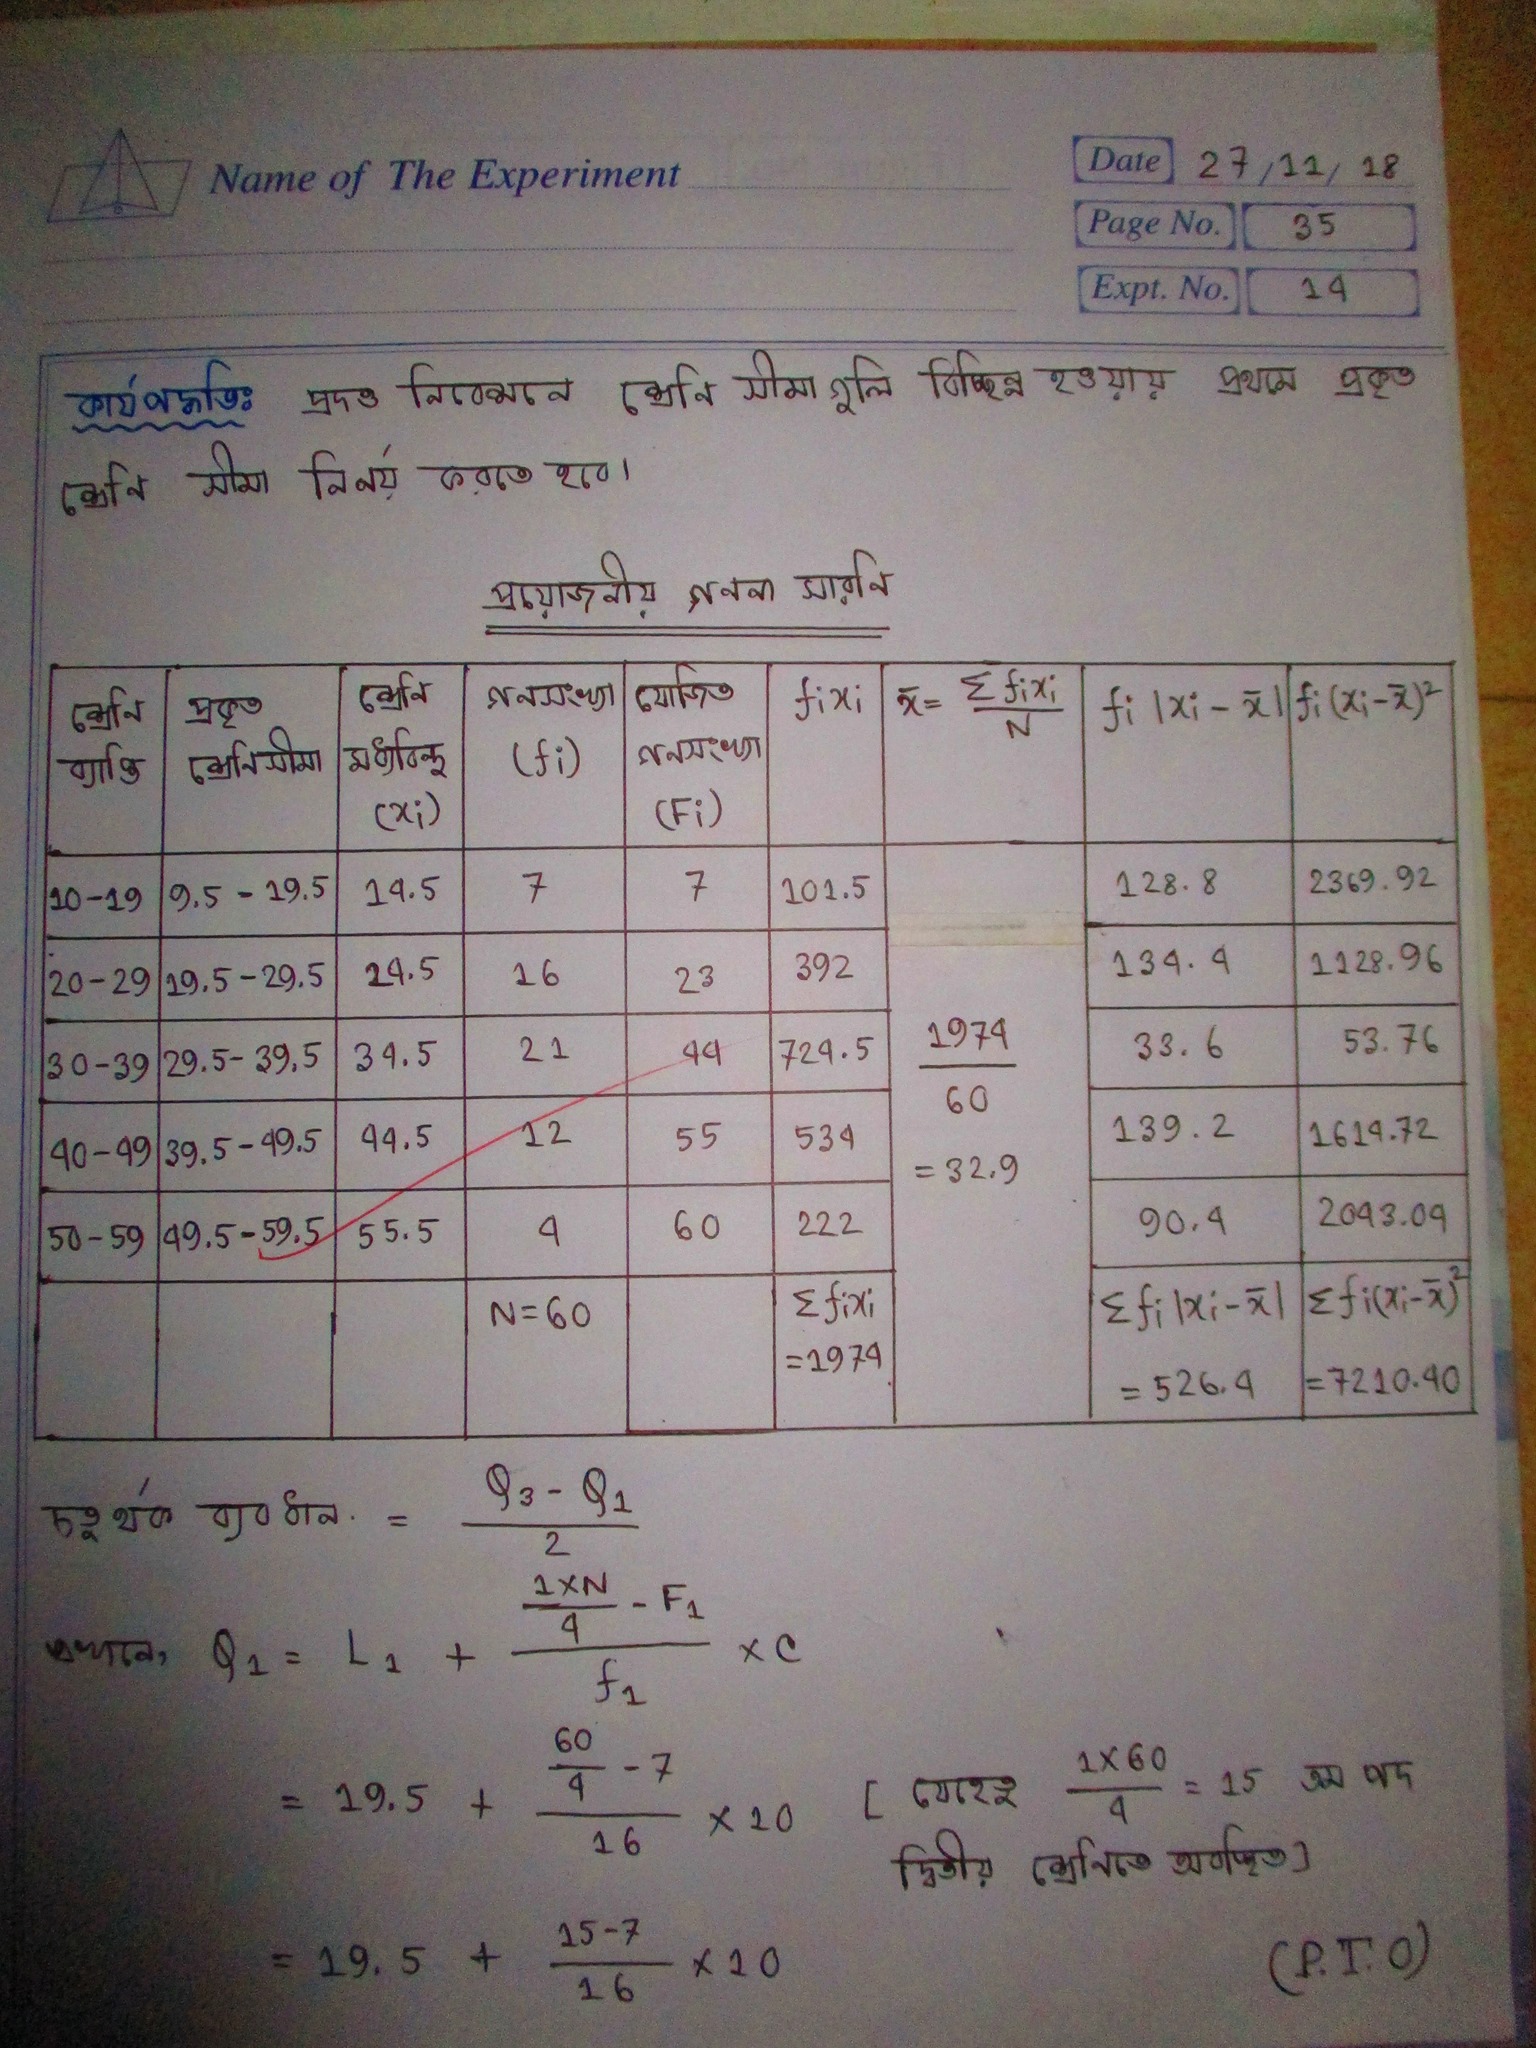 Name of The Experiment
Date 27/11/18
Page No. 35
Expt. No. 14
কার্যপদ্ধতিঃ প্রদত্ত নিবেশনে শ্রেনি সীমাগুলি বিচ্ছিন্ন হওয়ায় প্রথমে প্রকৃত
শ্রেনি সীমা নির্নয় করতে হবে।
প্রয়োজনীয় গননা সারনি
শ্রেনি ব্যাপ্তি | প্রকৃত শ্রেনিসীমা | শ্রেনি মধ্যবিন্দু (xi) | গনসংখ্যা (fi) | যোজিত গনসংখ্যা (Fi) | fixi | x̄ = Σfixi/N | fi |xi - x̄| | fi(xi-x̄)²
10-19 | 9.5 - 19.5 | 14.5 | 7 | 7 | 101.5 | 128.8 | 2369.92
20-29 | 19.5-29.5 | 24.5 | 16 | 23 | 392 | 134.4 | 1128.96
30-39 | 29.5-39.5 | 34.5 | 21 | 44 | 724.5 | 1974/60 | 33.6 | 53.76
40-49 | 39.5-49.5 | 44.5 | 12 | 55 | 534 | = 32.9 | 139.2 | 1614.72
50-59 | 49.5-59.5 | 55.5 | 4 | 60 | 222 | 90.4 | 2043.04
N=60 | Σfixi =1974 | Σfi |xi-x̄| = 526.4 | Σfi(xi-x̄)² =7210.40
চতুর্থক ব্যবধান. = (Q3 - Q1)/2
এখানে, Q1 = L1 + ((1×N)/4 - F1)/f1 × C
= 19.5 + (60/4 - 7)/16 × 10 [ যেহেতু (1×60)/4 = 15 তম পদ
দ্বিতীয় শ্রেনিতে অবস্থিত]
= 19.5 + (15-7)/16 × 10
(P.T.O)